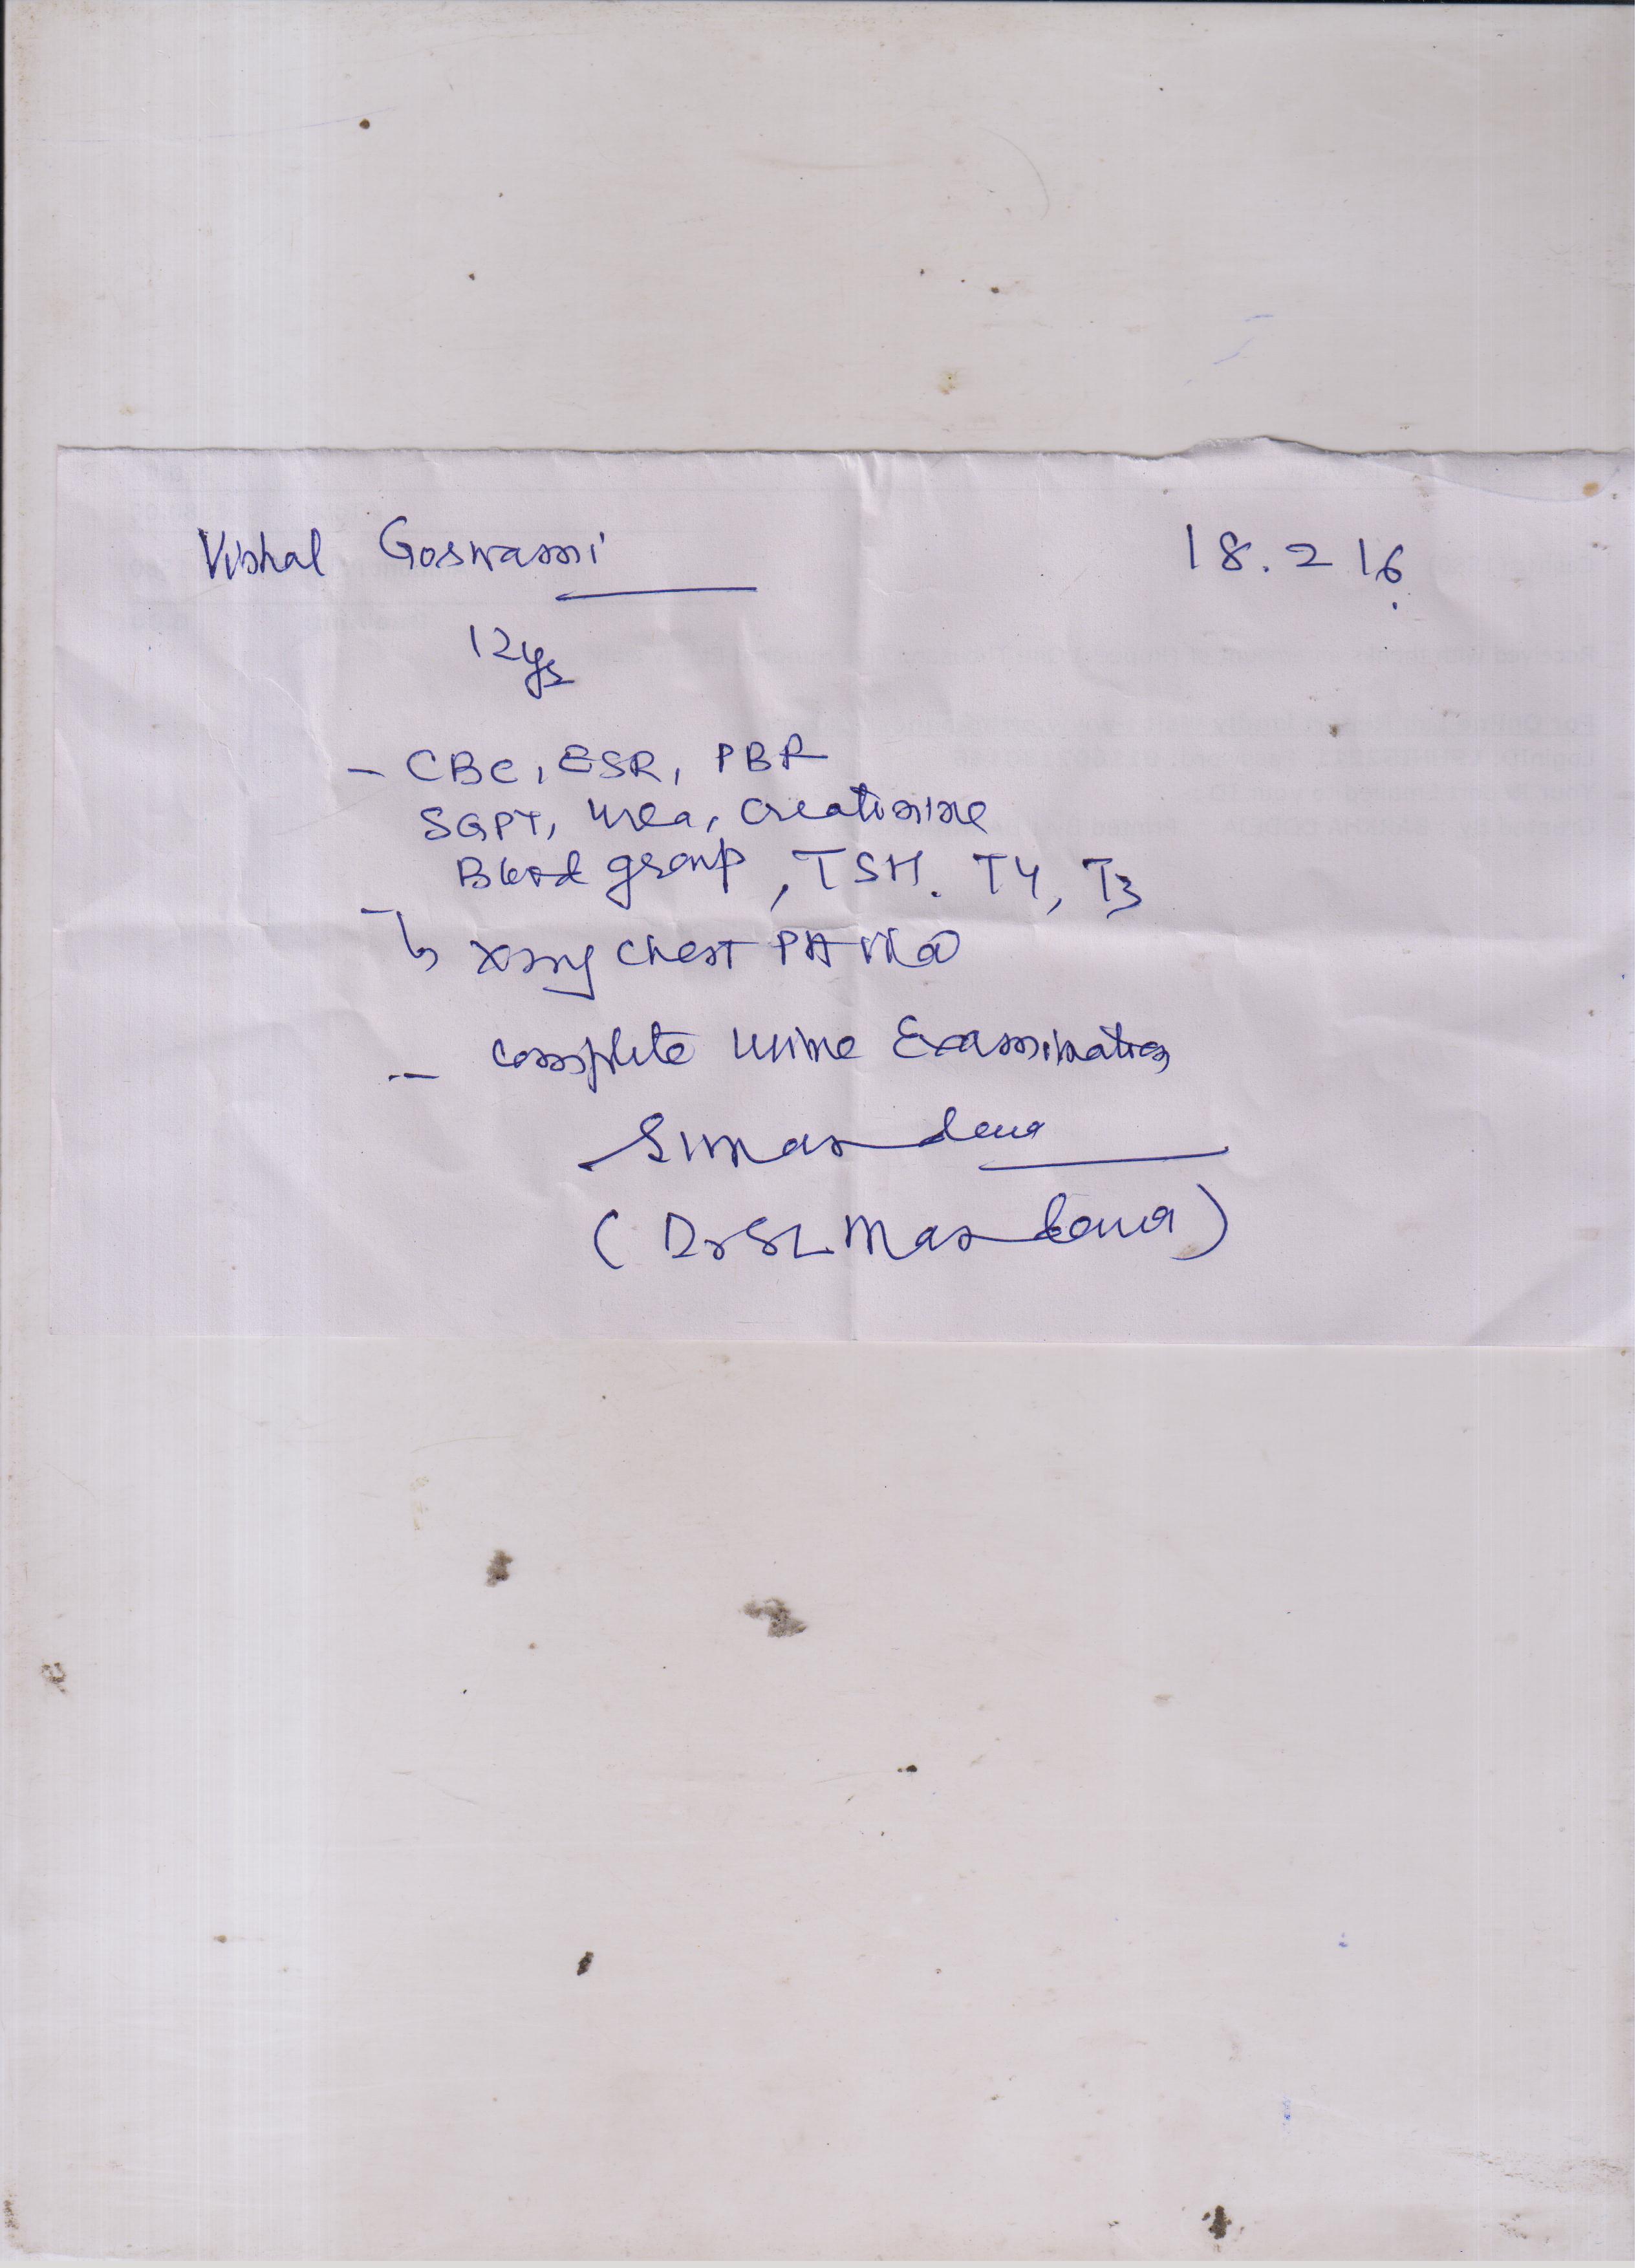 Vishal Goswami 18.2 16
12ys
- CBC, ESR, PBF
SGPT, urea, creatinine
Blood group, TSH. T4, T3
xray chest PA view
- complete urine Examination
(Dr SL